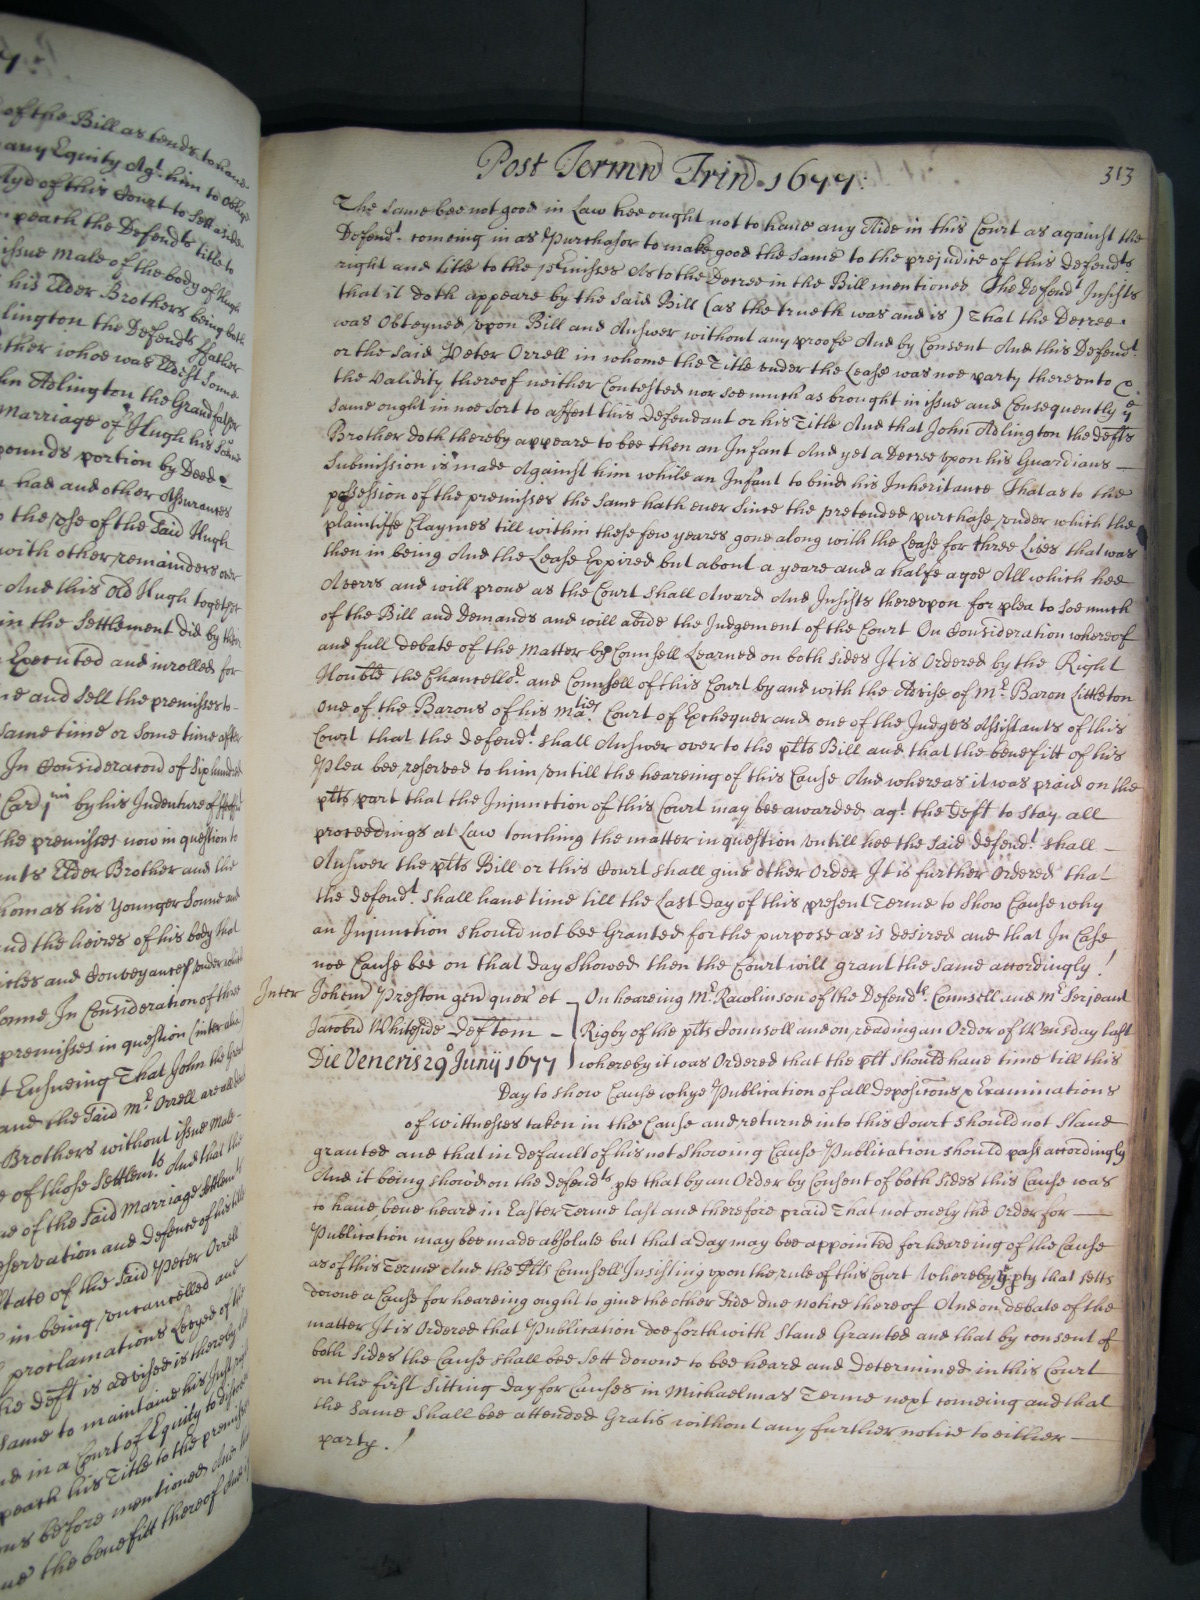 of the Bill as tends to
any Equity Agt. him to oblige
of this Court to sett aside
peach the Defendts title to
issue male of the body of Hugh
his Elder Brothers being both
lington the Defendts ffather
ther whoe was Eldest Sonne
hn Adlington the Grandfather
Marriage of Hugh his Sonne
pounds portion by Deed
had and other Assurances
the vse of the said Hugh
with other remainders over
And this Old Hugh together
in the Settlement did by
Executed and inrolled for
me and sell the premisses to
same time or some time after
In Consideracon of Six hundred
by his Indenture of
the premisses now in question to
nts Elder Brother and the
homas his Younger Sonne and
and the heires of his body that
itles and Conveyances vnder which
onne In Consideration of three
premisses in question (inter alia)
t Ensueing That John the
and the said Mr. Orrell are all
Brothers without issue Male
e of those Settlemts. And that the
ue of the said Marriage Settlemt
eservation and defence of his title
state of the said Peter Orrell
in being vncancelled and
proclamations Levyed of the
he deft is advised is thereby
same to maintaine his Just
ue in a Court of Equity to
peach his Title to the premisses
ns before mentioned And
ue the benefitt thereof And
Post Termn̄ Trin̄. 1677.
313
The same bee not good in Law hee ought not to have any Aide in this Court as against the
Defendt. comeing in as Purchasor to make good the same to the prejudice of this defendts
right and title to the pr̄misses As to the Decree in the Bill mentioned The Defendt Insists
that it doth appeare by the said Bill (as the trueth was and is) That the Decree
was Obteyned vpon Bill and Answer without any proofe And by Consent And this Defendt.
or the said Peter Orrell in whome the Title vnder the Lease was noe party therevnto
the Validity thereof neither Contested nor soe much as brought in issue and Consequently ye
same ought in noe sort to affect this Defendant or his Title And that John Adlington the defts
Brother doth thereby appeare to bee then an Infant And yet a Decree vpon his Guardians
Submission is made Against him while an Infant to bind his Inheritance That as to the
possession of the premisses the same hath ever since the pretended purchase vnder which the
plaintiffe Claymes till within these few yeares gone along with the Lease for three Lives that was
then in being And the Lease Expired but about a yeare and a halfe agoe All which hee
Averrs and will prove as the Court shall Award And Insists therevpon for plea to soe much
of the Bill and Demands and will abide the Judgement of the Court On Consideration whereof
and full debate of the Matter by Counsell Learned on both sides It is Ordered by the Right
Honoble the Chancellor. and Counsell of this Court by and with the Advise of Mr. Baron Littleton
one of the Barons of his Maties Court of Exchequer and one of the Judges Assistants of this
Court that the defendt. shall Answer over to the plts Bill and that the benefitt of his
Plea bee reserved to him vntill the heareing of this Cause And whereas it was praid on the
plts part that the Injunction of this Court may bee awarded agt the Deft to stay all
proceedings at Law touching the matter in question vntill hee the said defendt. shall
Answer the plts Bill or this Court shall give other Order It is further Ordered that
the defendt. shall have time till the Last day of this present Terme to show Cause why
an Injunction should not bee Granted for the purpose as is desired and that In Case
noe Cause bee on that day showed then the Court will grant the same accordingly!
Inter Johem Preston gen̄ quer̄ et
Jacobu̅ Whiteside Deftem
Die Veneris 29o Junij 1677
On heareing Mr. Rawlinson of the Defendts. Counsell and Mr. Serjeant
Rigby of the plts Counsell and on reading an Order of Wensday last
whereby it was Ordered that the plt should have time till this
Day to show Cause whye Publication of all depositons & Examinations
of wittnesses taken in the Cause and returnd into this Court should not Stand
granted and that in default of his not showing Cause Publication should pass accordingly
And it being showed on the defendts pte that by an Order by Consent of both sides this Cause was
to have bene heard in Easter Terme last and therefore praid That not onely the Order for
Publication may bee made absolute but that a day may bee appointed for heareing of the Cause
as of this Terme And the Plts Counsell Insisting vpon the rule of this Court whereby ye pty that setts
downe a Cause for heareing ought to give the other side due notice thereof And on debate of the
matter It is Ordered that Publication doe forthwith Stand Granted and that by consent of
both sides the Cause shall bee sett downe to bee heard and Determined in this Court
on the first Sitting day for Causes in Michaelmas Terme next comeing and that
the same shall bee attended Gratis without any further notice to either
party.!